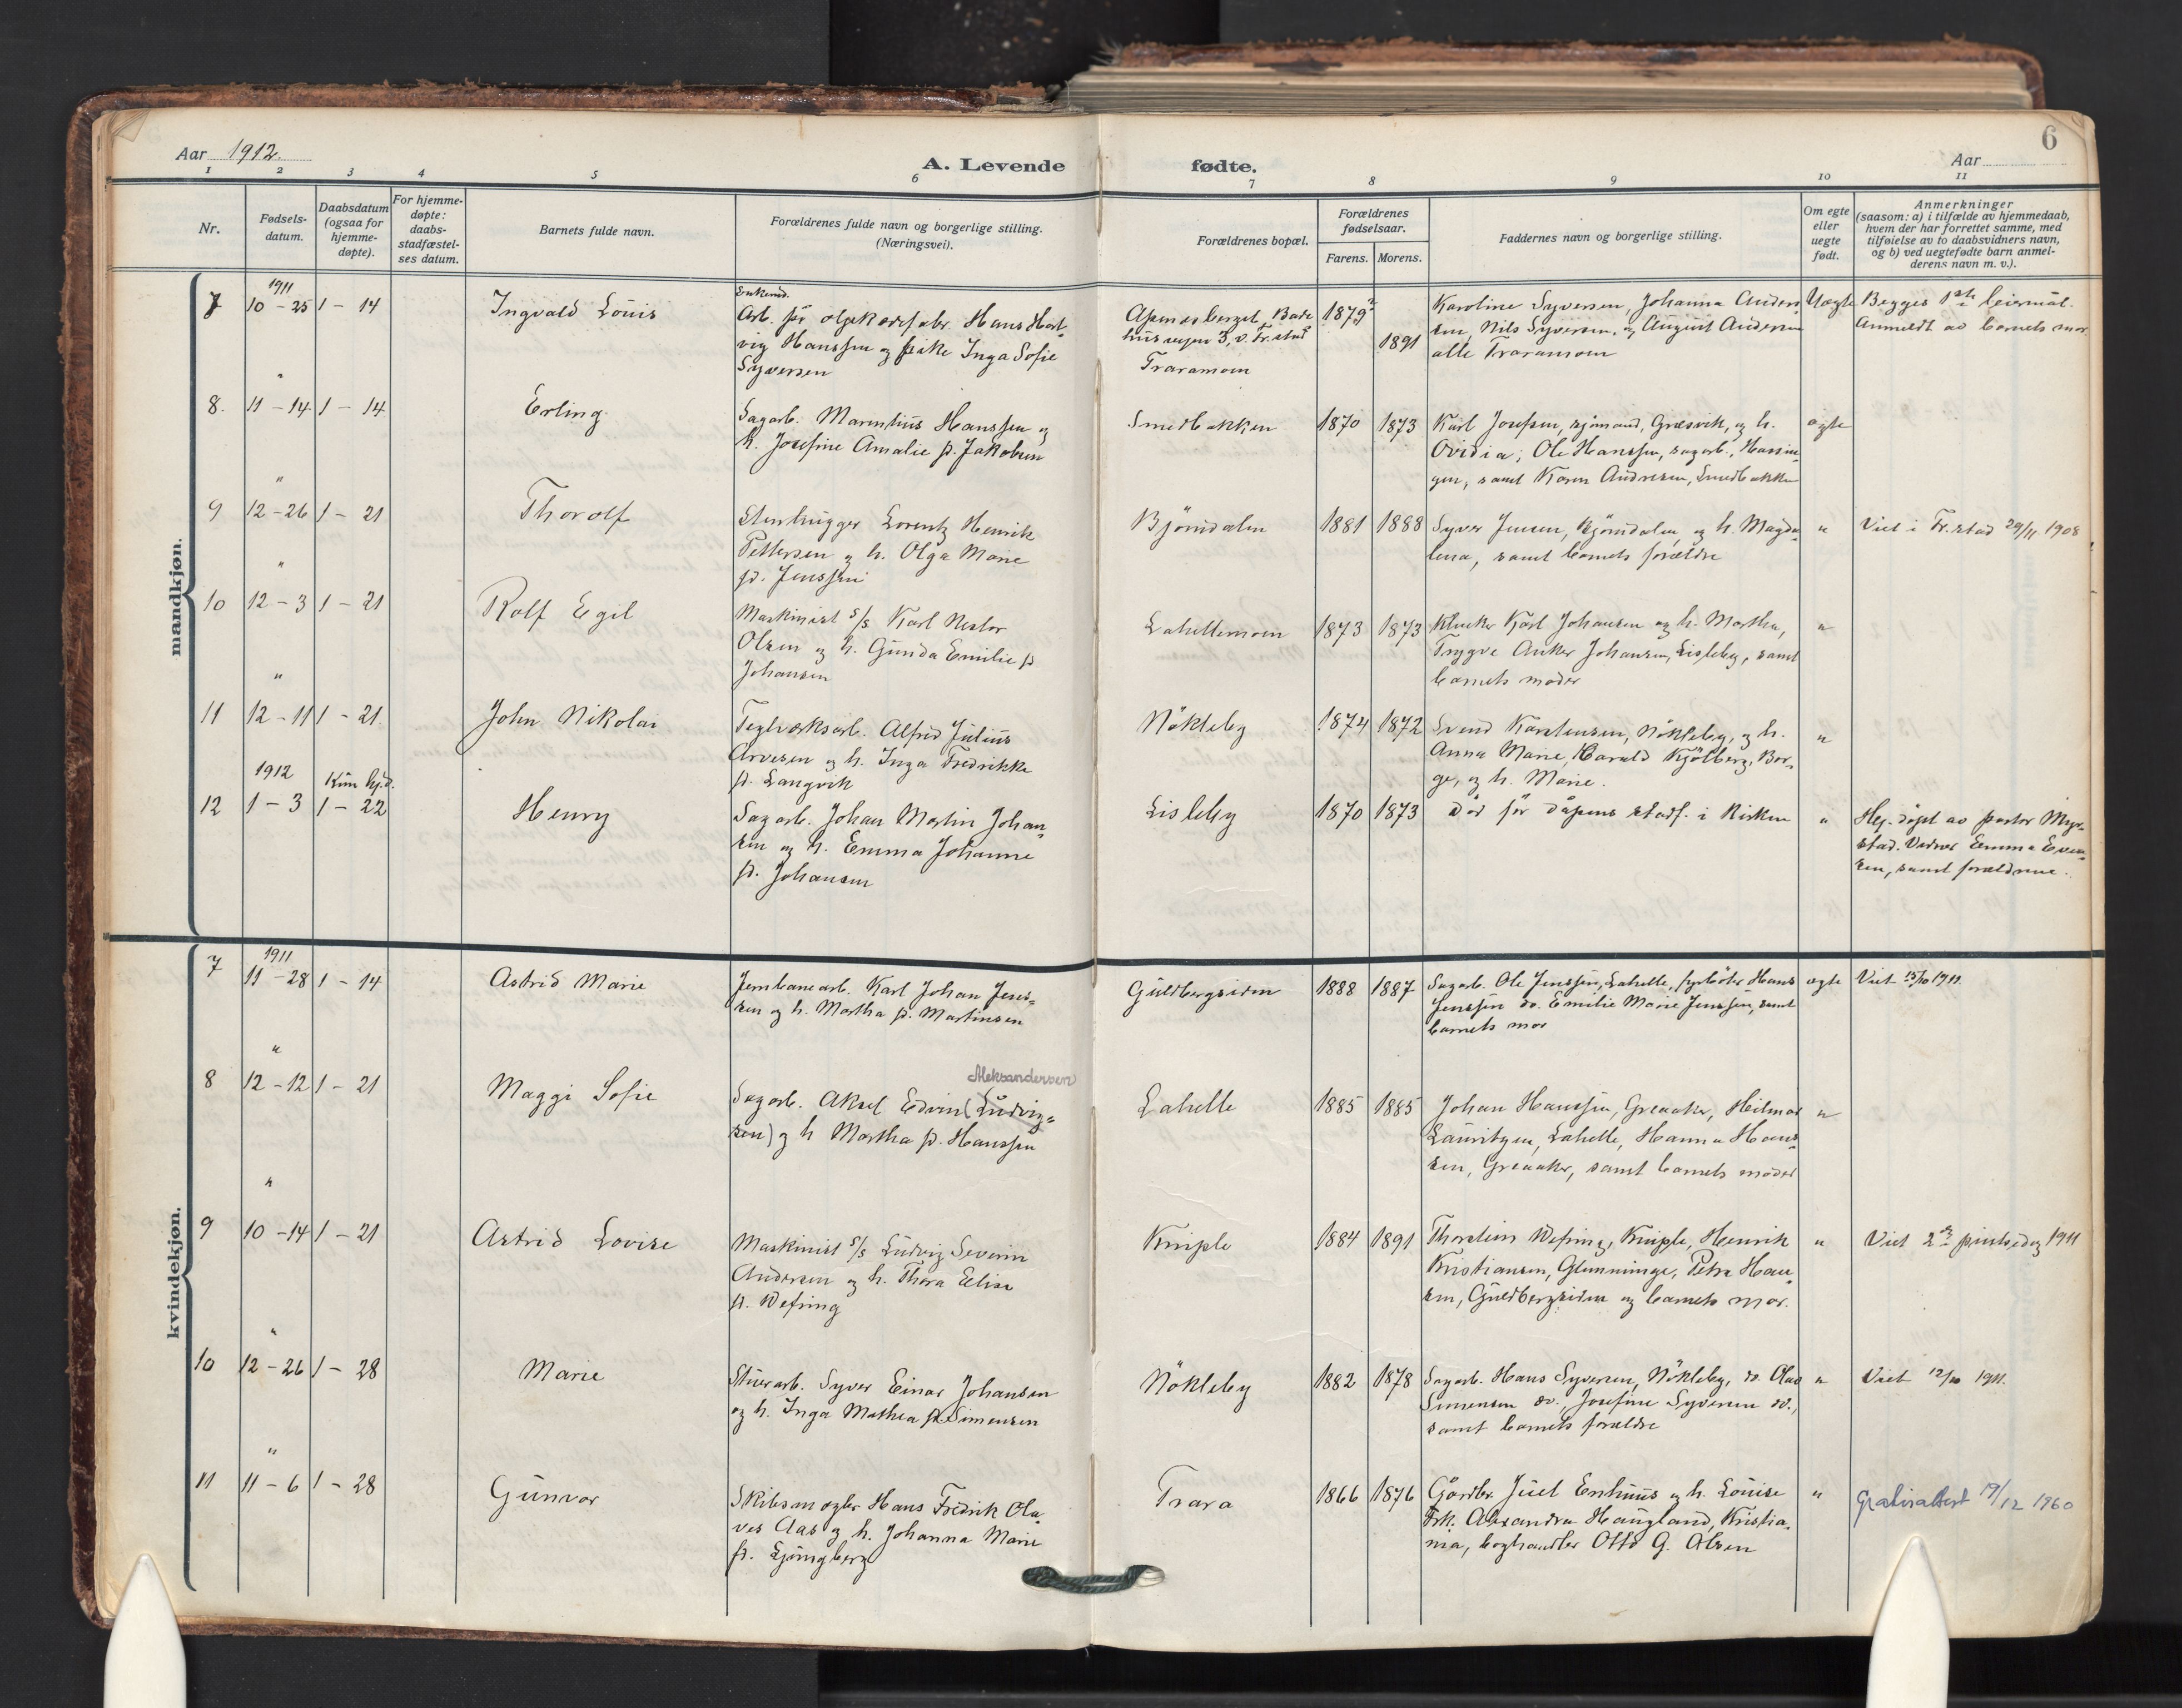 Aar 1912.
A. Levende fødte.
Aar
6
1 2 3 4 5 6 7 8 9 10 11
Nr.
Fødsels-
datum.
Daabsdatum
(ogsaa for
hjemme-
døpte).
For hjemme-
døpte:
daabs-
stadfæstel-
ses datum.
Barnets fulde navn.
Forældrenes fulde navn og borgerlige stilling.
(Næringsvei).
Forældrenes bopæl.
Forældrenes
fødselsaar.
Farens. Morens.
Faddernes navn og borgerlige stilling.
Om egte
eller
uegte
født.
Anmerkninger
(saasom: a) i tilfælde av hjemmedaab,
hvem der har forrettet samme, med
tilføielse av to daabsvidners navn,
og b) ved uegtefødte barn anmel-
derens navn m. v.).
mandkjøn.
7
1911
10-25
1-14
Ingvald Louis
Enkemd.
Arb. Hans Hart-
vig Hanssen og pike Inga Sofie
Syversen
Traramoen
1879?
1891
Karoline Syversen, Johanna Ander-
sen, Nils Syversen, og August Andersen
alle Traramoen
Uegte
Begges 1ste leiermål.
Anmeldt av barnets mor.
8.
"
11-14
1-14
Erling
Sagarb. Marentius Hanssen og
h. Josefine Amalie f. Jakobsen
Smedbakken
1870
1873
Karl Josefsen, sjömand, Græsvik, og h.
Ovidia, Ole Hanssen, sagarb.,
samt Karen Andresen, Smedbakken
egte
9
"
12-26
1-21
Thorolf
Stenhugger Lorentz Henrik
Pettersen og h. Olga Marie
f. Jenssen
Björndalen
1881
1888
Syver Jensen, Björndalen, og h. Magda-
lena, samt barnets forældre
"
Viet i Fr.stad 29/11 1908
10
"
12-3
1-21
Rolf Egil
Maskinist s/s Karl Nestor
Olsen og h. Gunda Emilie f.
Johansen
Lahellemoen
1873
1873
Klokker Karl Johansen og h. Martha,
Trygve Anker Johansen, Lisleby, samt
barnets moder
"
11
"
12-11
1-21.
John Nikolai
Teglverksarb. Alfred Julius
Arvesen og h. Inga Fredrikke
f. Langvik
Nökleby
1874
1872
Svend Karstensen, Nökleby, og h.
Anna Marie, Harald Kjölberg, Bor-
ge, og h. Marie.
"
12
1912
1-3
Kun hj.d.
1-22
Henry
Sagarb. Johan Martin Johan-
sen og h. Emma Johanne
f. Johansen
Lisleby
1870
1873
död för dåpens stadf. i kirken
"
Hj. döpt av pastor Myr-
stad. Vidner Emma Even-
sen, samt forældrene.
kvindekjøn.
7
1911
11-28
1-14
Astrid Marie
Jernbanearb. Karl Johan Jens-
sen og h. Martha f. Martinsen
Guldbergsiden
1888
1887
Sagarb. Ole Jenssen, Lahelle, fyrböter Hans
Jenssen do. Emilie Marie Jenssen, samt
barnets mor
egte
Viet 15/10 1911.
8
"
12-12
1-21
Maggi Sofie
Aleksandersen
Sagarb. Aksel Edvin (Ludvig-
sen) og h Martha f. Hanssen
Lahelle
1885
1885
Johan Hanssen, Greaaker, Hilmar
Lauritzen, Lahelle, Hanna Hans-
sen, Greaaker, samt barnets moder
"
9
"
10-14
1-21
Astrid Lovise
Maskinist s/s Ludvig Severin
Andersen og h. Thora Elise
f. Wefring
Kniple
1884
1891
Thorstein Wefring, Kniple, Henrik
Kristiansen, Glemminge, Petra Han-
sen, Guldbergsiden og barnets mor.
"
Viet 2den pinsedag 1911
10
"
12-26
1-28
Marie
Stuerarb. Syver Einar Johansen
og h. Inga Mathea f. Simensen
Nökleby
1882
1878
Sagarb. Hans Syversen, Nökleby, do. Olav
Simensen do., Josefine Syversen do.,
samt barnets forældre
"
Viet 12/10 1911.
11
"
11-6
1-28
Gunvor
Skibsmægler Hans Fredrik Ola-
ves Aas og h. Johanna Marie
f. Ljungberg
Trara
1866
1876
Gårdbr. Juel Enhuus og h. Louise
Frk. Alexandra Haugland, Kristia-
nia, boghandler Otto G. Olsen
"
Gratisattest 19/12 1960